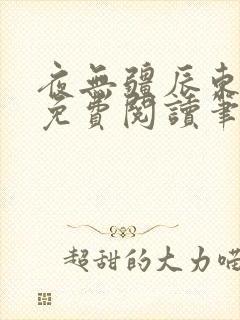 夜無疆辰東
免費閱讀筆
超甜的大力喵